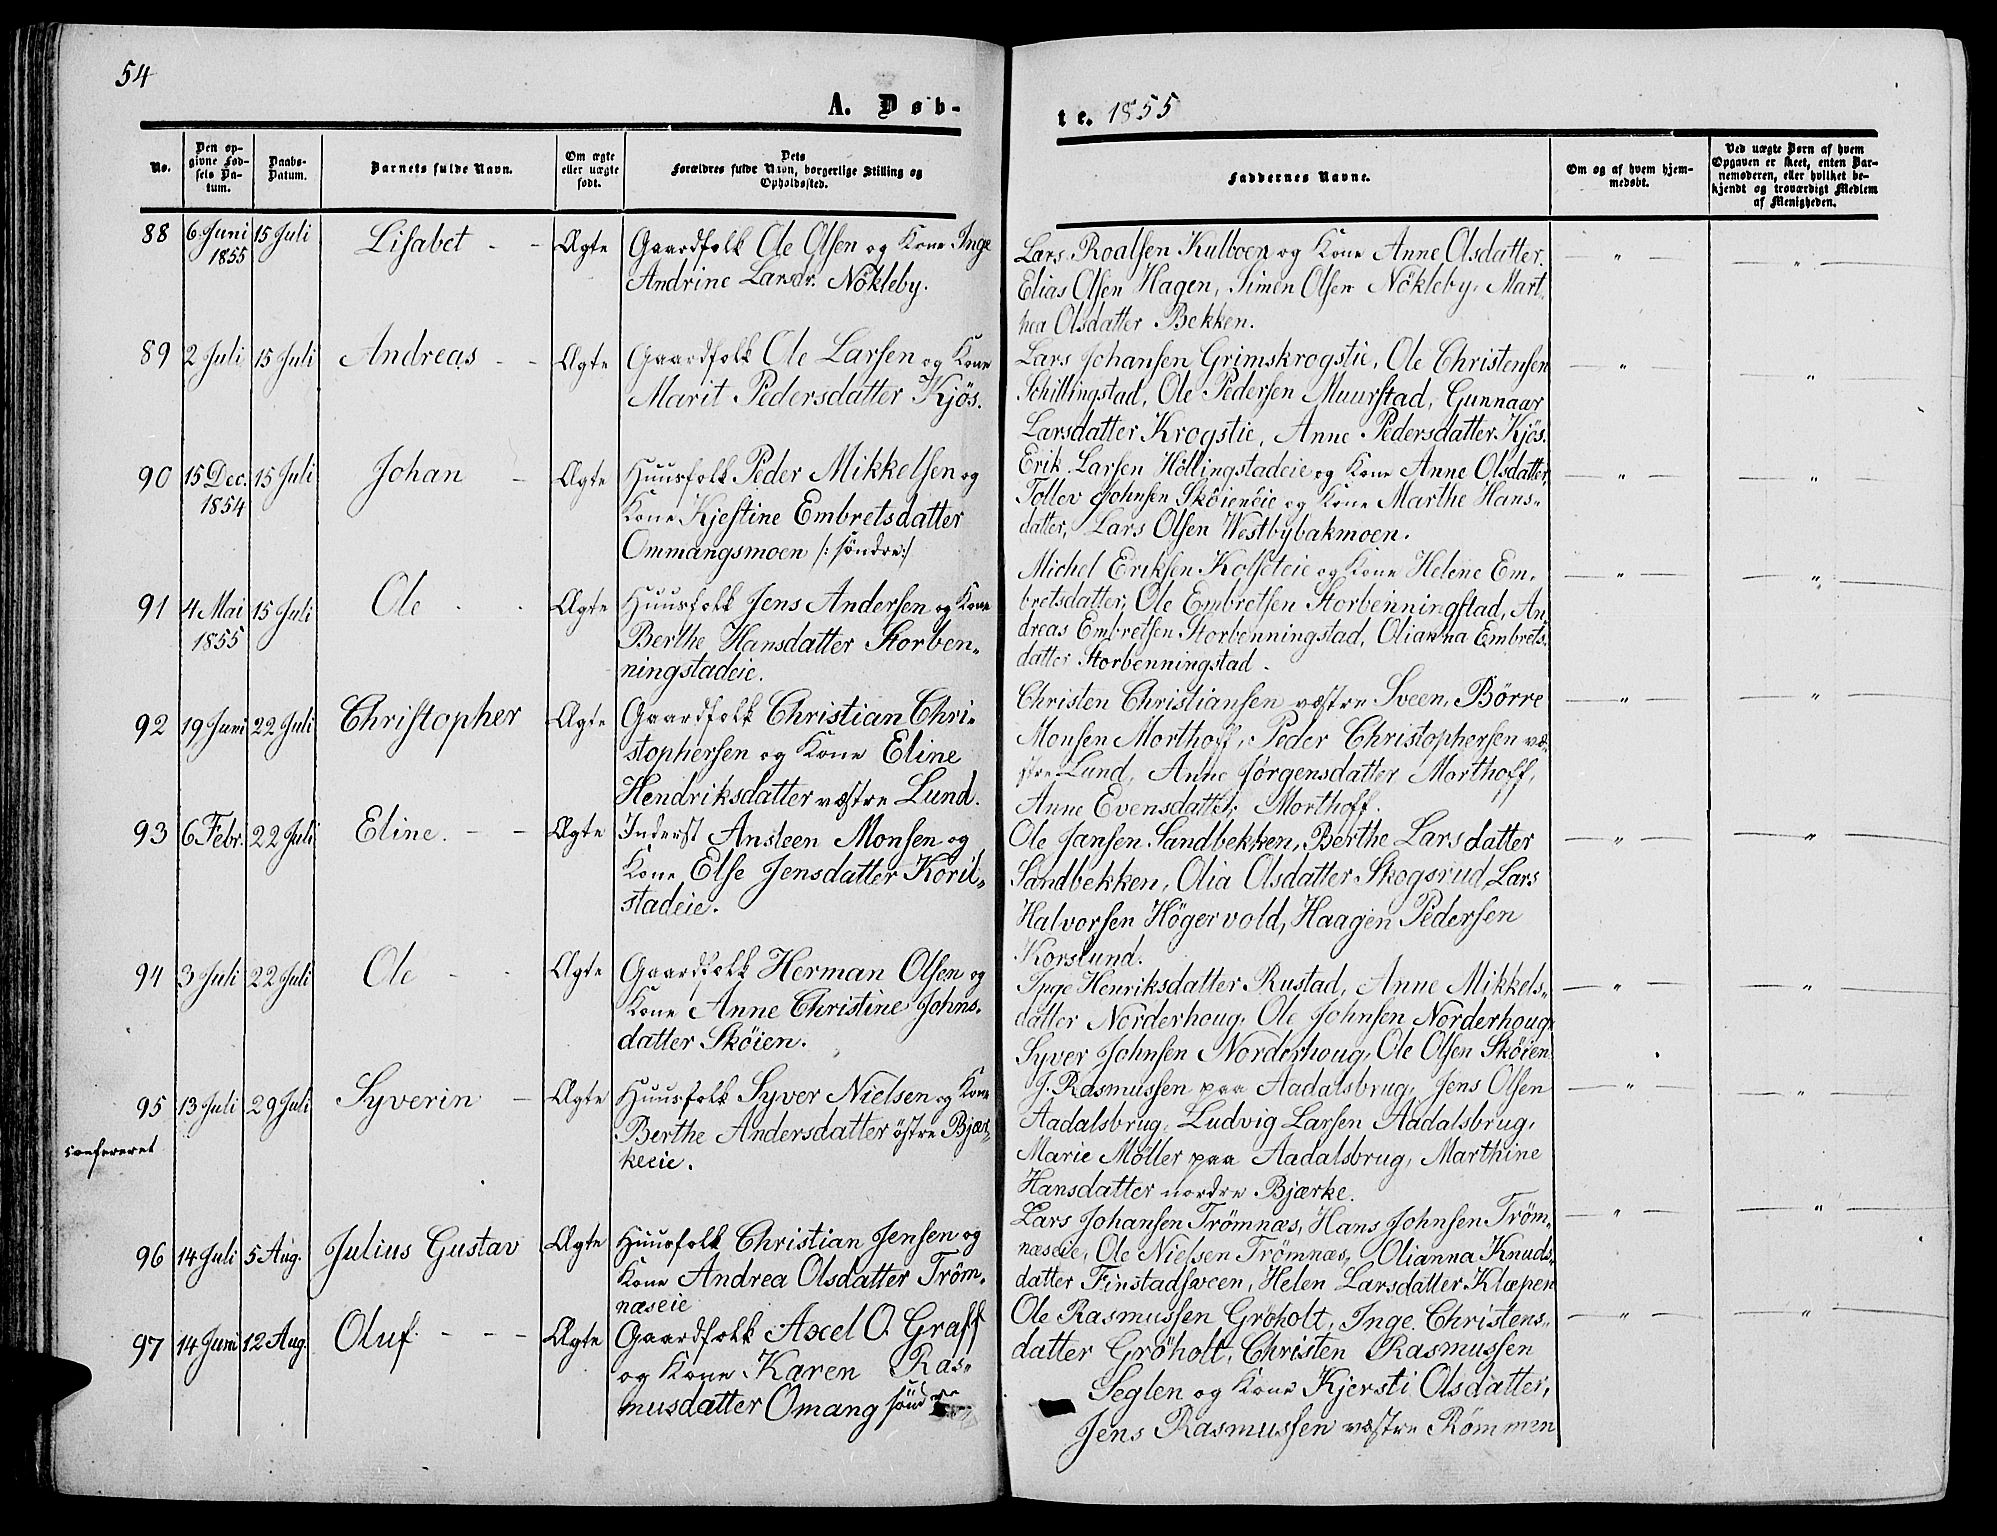 54
A. Døb-
No.
Den op-
givne Fød-
sels Da-
tum.
Daabs-
Datum.
Barnets fulde Navn.
Om ægte
eller uægte
født.
Dets
Forældres fulde Navn, borgerlige Stilling og
Opholdssted.
88 6. Juni 15 Juli Lisabet - - Ægte Gaardfolk Ole Olsen og Kone Inge
1855 Andrine Larsdr. Nökleby.
89 2 Juli 15 Juli Andreas - - Ægte Gaardfolk Ole Larsen og Kone
Marit Pedersdatter Kjös.
90 15 Dec. 15 Juli Johan - Ægte Huusfolk Peder Mikkelsen og
1854 Kone Kjestine Embretsdatter
Ommangsmoen /: søndre:/
91 4 Mai 15 Juli Ole - - Ægte Huusfolk Jens Andersen og Kone
1855 Berthe Hansdatter Storben-
ningstadeie.
92 19 Juni 22 Juli Christopher Ægte Gaardfolk Christian Chri-
stophersen og Kone Eline
Hendriksdatter væstre Lund.
93 6 Febr. 22 Juli Eline. - - Ægte Inderst Ansteen Monsen og
Kone Else Jensdatter Koril-
stadeie.
94 3 Juli 22 Juli Ole - - Ægte Gaardfolk Herman Olsen og
Kone Anne Christine Johns-
datter Sköien.
95 13 Juli 29 Juli Syverin - Ægte Huusfolk Syver Nielsen og Kone
confereret Berthe Andersdatter östre Bjær-
keeie.
96 14 Juli 5 Aug. Julius Gustav Ægte Huusfolk Christian Jensen og
Kone Andrea Olsdatter Tröm-
næseie
97 14 Juni 12 Aug. Oluf. - - - Ægte Gaardfolk Axel O. Graff
og Kone Karen Ras-
musdatter Omang søndre
te. 1855
Faddernes Navne.
Om og af hvem hjem-
medøbt.
Ved uægte Børn af hvem
Opgaven er skeet, enten Bar-
nemoderen, eller hvilket be-
kjendt og troværdigt Medlem
af Menigheden.
Lars Roalsen Kulboen og Kone Anne Olsdatter. — " — — " —
Elias Olsen Hagen, Simen Olsen Nökleby, Mart-
hea Olsdatter Bekken.
Lars Johansen Grimskrogstie, Ole Christensen — " — — " —
Schillingstad, Ole Pedersen Muurstad, Gunnaar
Larsdatter Krogstie, Anne Pedersdatter Kjös.
Erik Larsen Höllingstadeie og Kone Anne Olsdatter, — " — — " —
Tollev Johnsen Sköieneie og Kone Marthe Hans-
datter, Lars Olsen Westbybakmoen.
Michel Eriksen Kolseteie og Kone Helene Em- — " — — " —
bretsdatter, Ole Embretsen Storbenningstad, An-
dreas Embretsen Storbenningstad, Olianna Embrets-
datter Storbenningstad.
Christen Christiansen væstre Sveen, Börre — " — — " —
Monsen Morthoff, Peder Christophersen væ-
stre Lund, Anne Jörgensdatter Morthoff,
Anne Evensdatter Morthoff.
Ole Jansen Sandbekken, Berthe Larsdatter — " — — " —
Sandbekken, Olia Olsdatter Skogsrud, Lars
Halvorsen Högervold, Haagen Pedersen
Korslund.
Inge Henriksdatter Rustad, Anne Mikkels- — " — — " —
datter Norderhoug, Ole Johnsen Norderhoug,
Syver Johnsen Norderhoug, Ole Olsen Sköien.
J. Rasmussen paa Aadalsbrug, Jens Olsen — " — — " —
Aadalsbrug, Ludvig Larsen Aadalsbrug,
Marie Möller paa Aadalsbrug, Marthine
Hansdatter nordre Bjærke.
Lars Johansen Trömnæs, Hans Johnsen Tröm- — " — — " —
næseie, Ole Nielsen Trömnæs, Olianna Knuds-
datter Finstadsveen, Helen Larsdatter Klæpen
Ole Rasmussen Gröholt, Inge Christens- — " — — " —
datter Gröholt, Christen Rasmussen
Seglen og Kone Kjersti Olsdatter,
Jens Rasmussen væstre Römmen